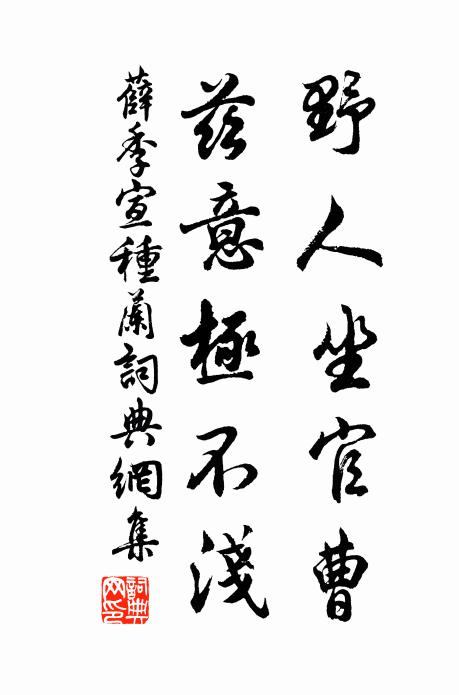 野人坐官曹
茲意極不淺
薛季宣種蘭詞典網集
詞典网印